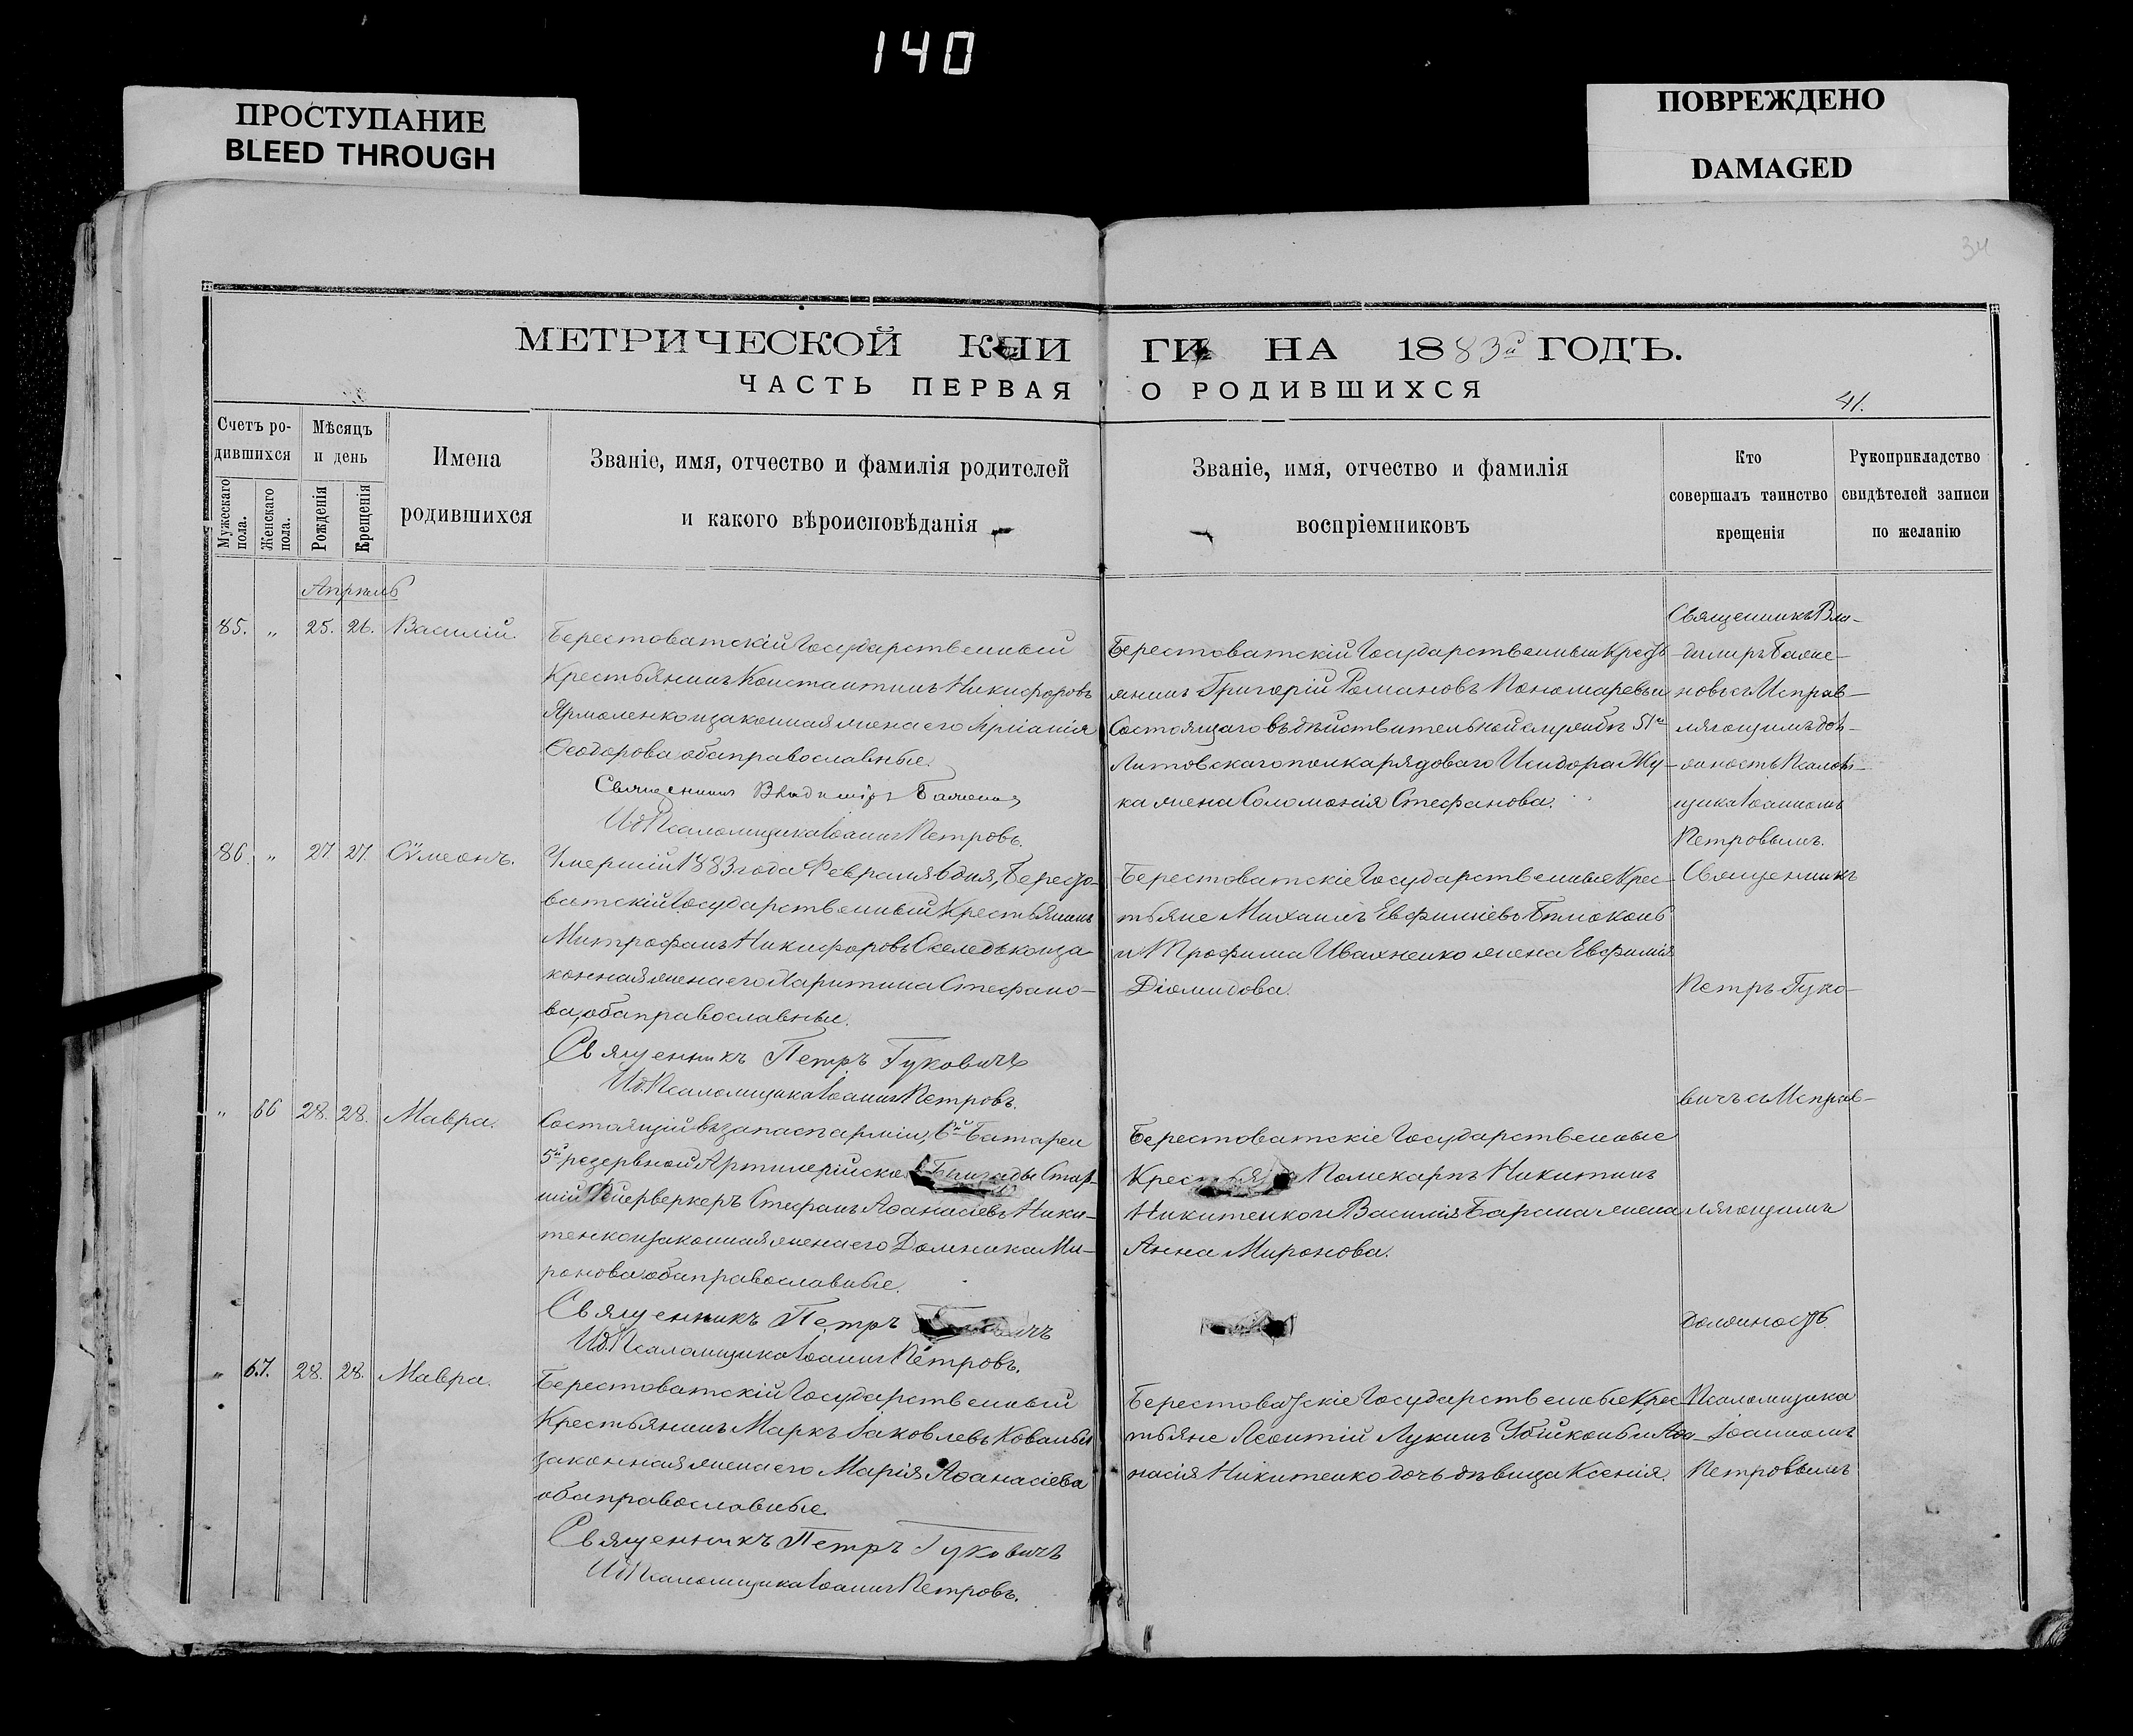 140
ПРОСТУПАНИЕ
BLEED THROUGH
ПОВРЕЖДЕНО
DAMAGED
34
МЕТРИЧЕСКОЙ КНИ ГИ НА 1883й ГОДЪ.
ЧАСТЬ ПЕРВАЯ О РОДИВШИХСЯ
41.
Счетъ ро-
дившихся
Мужескаго пола.
Женскаго пола.
Мѣсяцъ
и день
Рожденія
Крещенія
Имена
родившихся
Званіе, имя, отчество и фамилія родителей
и какого вѣроисповѣданія
Званіе, имя, отчество и фамилія
воспріемниковъ
Кто
совершалъ таинство
крещенія
Рукоприкладство
свидѣтелей записи
по желанію
Апрель
85. " 25. 26. Василій.
Берестоватскій Государственный
Крестьянинъ Константинъ Никифоровъ
Ярмоленко и законная жена его Иріанія
Ѳеодорова оба православные.
Священникъ Владиміръ
И. д. Псаломщика Іоаннъ Петровъ.
Берестоватскій Государственный Кресть
янинъ Григорій Романовъ Пономаревъ и
Состоящаго въ дѣйствительной службѣ 51го
Литовскаго полка рядоваго Исидора Жу-
ка жена Соломонія Стефанова.
Священникъ Вла-
димиръ
новъ съ Исправ-
ляющимъ дол-
жность Псалом-
щика Іоанномъ
Петровымъ.
86. " 27. 27. Сѵмеонъ.
Умершій 1883 года Февраля 6 дня, Бересто-
ватскій Государственный Крестьянинъ
Митрофанъ Никифоровъ Оселедько и за-
конная жена его Харитина Стефано-
ва, оба православные.
Священникъ Петръ Гуковичъ
И. д. Псаломщика Іоаннъ Петровъ.
Берестоватскіе Государственные Крес-
тьяне Михаилъ Евфиміевъ
и Трофима Ивахненко жена Евфимія
Діомидова.
Священникъ
Петръ Гуко-
вичъ съ Исправ-
ляющимъ
должность
Псаломщика
Іоанномъ
Петровымъ
" 66 28. 28. Мавра.
Состоящій въ запасѣ арміи, 6й Батареи
5й резервной Артилерійской Бригады Стар-
шій Фейерверкеръ Стефанъ Аѳанасіевъ Ники-
тенко и законная жена его Домника Ми-
ронова оба православные.
Священникъ Петръ
И. д. Псаломщика Іоаннъ Петровъ.
Берестоватскіе Государственные
Поликарпъ Никитинъ
Никитенко и Василія Барана жена
Анна Миронова.
" 67. 28. 28. Мавра.
Берестоватскій Государственный
Крестьянинъ Маркъ Іаковлевъ Коваль и
законная жена его Марія Аѳанасіева
оба православные.
Священникъ Петръ Гуковичъ
И. д. Псаломщика Іоаннъ Петровъ.
Берестоватскіе Государственные Крес-
тьяне Леонтій Лукинъ Убийконь и Аѳа-
насія Никитенко дочь дѣвица Ксенія.